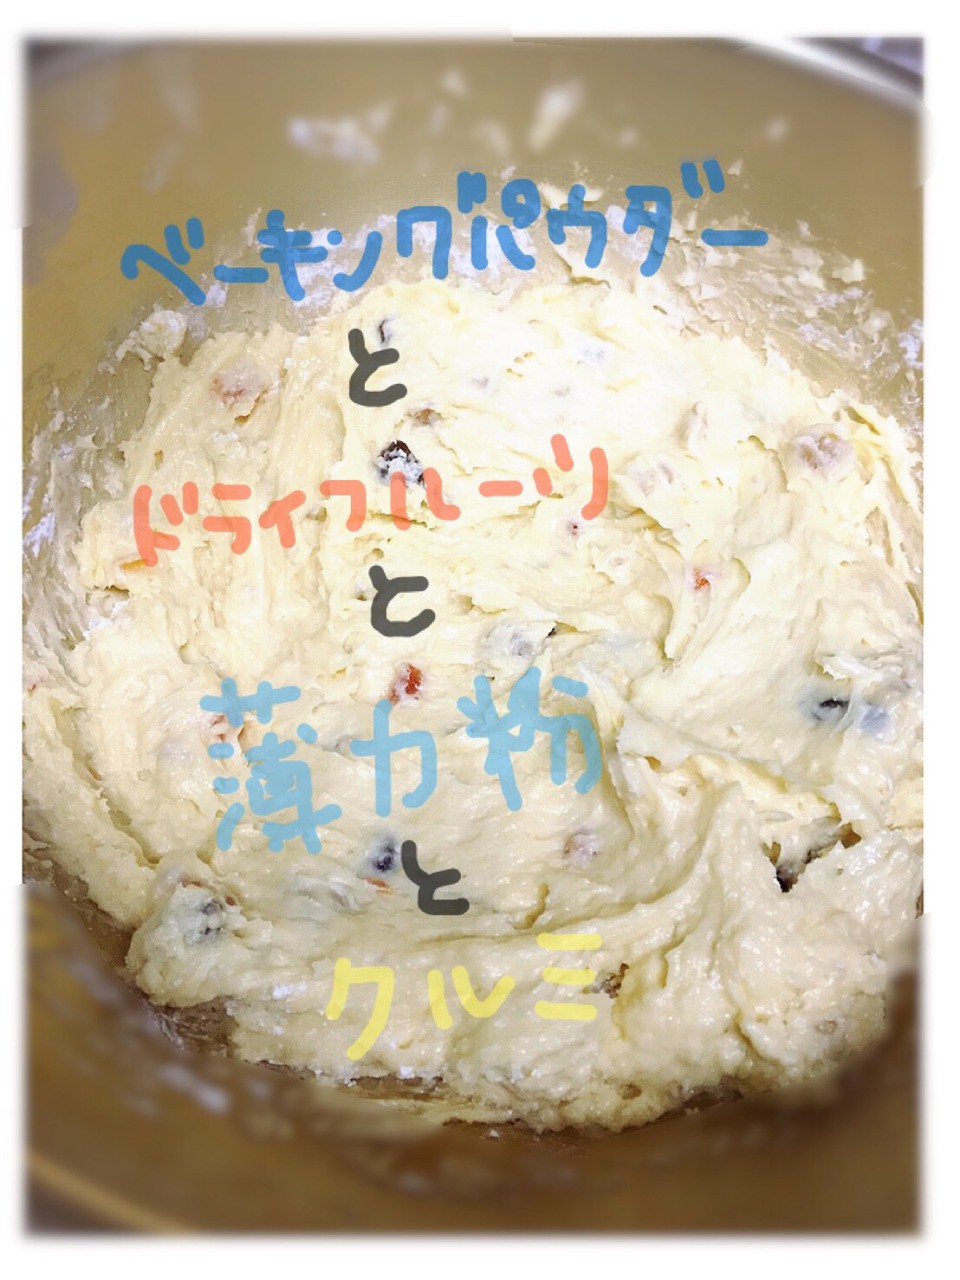 ベーキングパウダー
と
ドライフルーツ
と
薄力粉
と
クルミ